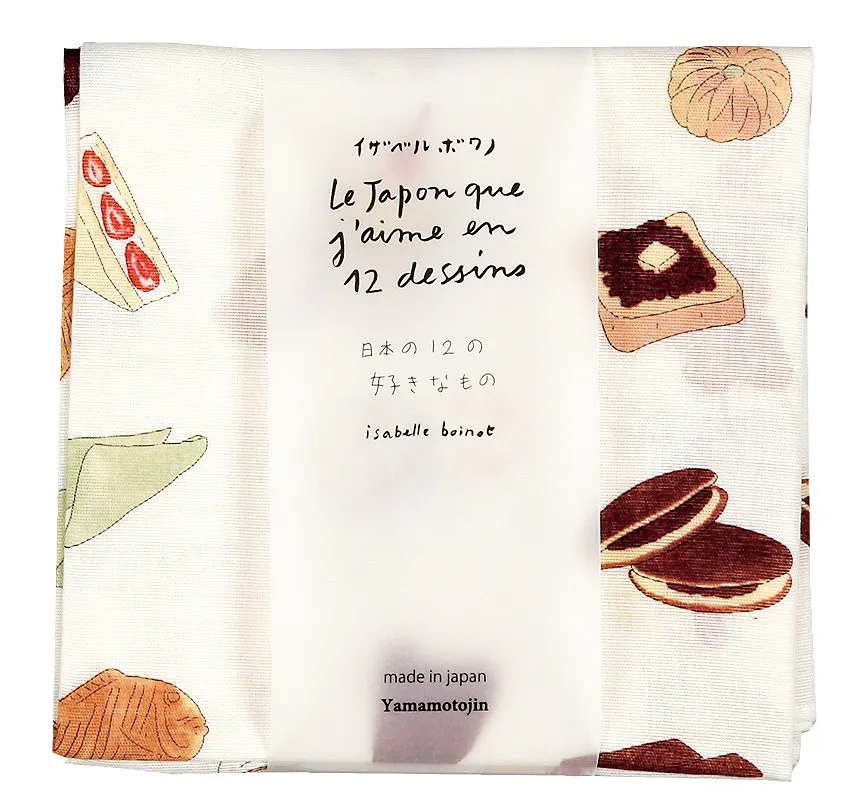 イザベル ボワノ
Le Japon que
j'aime en
12 dessins
日本の12の
好きなもの
isabelle boinot
made in japan
Yamamotojin